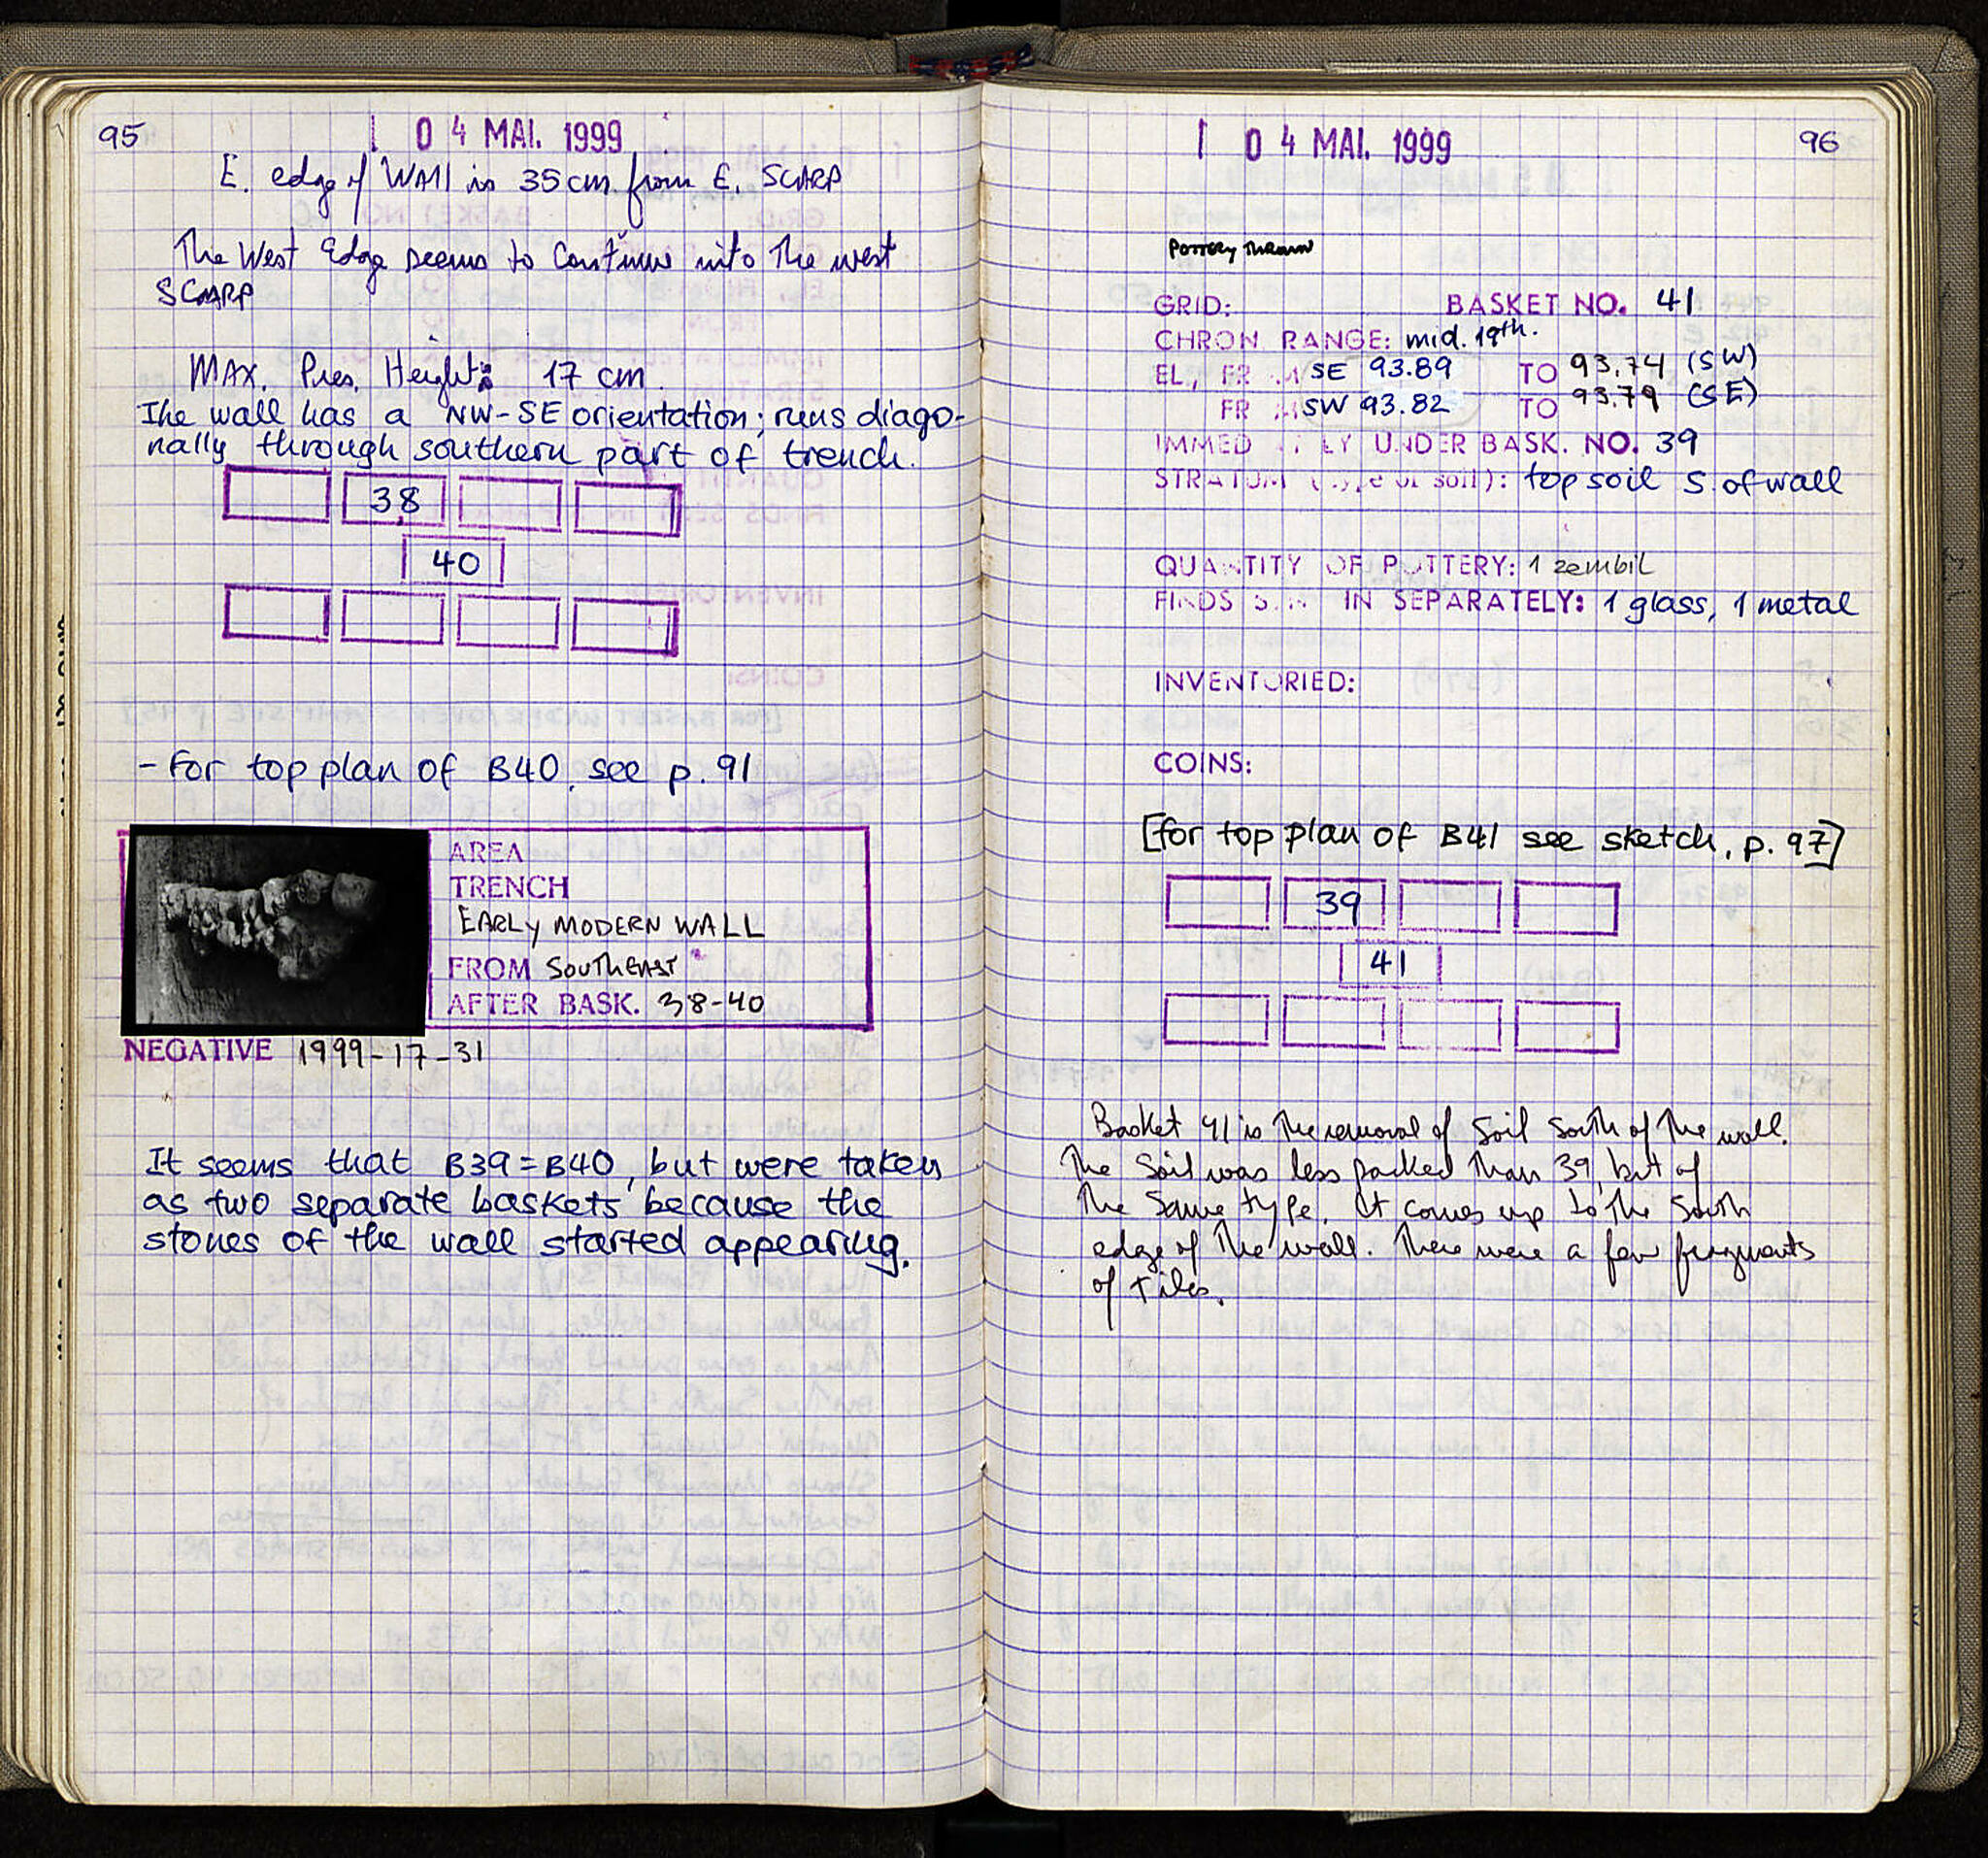 95
0 4 MAI. 1999
E. edge of WAll is 35cm from E. SCARP
The West Edge seems to Continue into The west
SCARP
MAX. Pres. Height: 17 cm.
The wall has a NW-SE orientation; runs diago-
nally through southern part of trench.
38
40
- for top plan of B40, see p. 91
AREA
TRENCH
EARLY MODERN WALL
FROM SOUTHEAST
AFTER BASK. 38-40
NEGATIVE 1999-17-31
It seems that B39=B40, but were taken
as two separate baskets because the
stones of the wall started appearing.
0 4 MAI. 1999
96
POTTERY THROWN
GRID: BASKET NO. 41
CHRON. RANGE: mid. 19th.
EL, FR SE 93.89 TO 93.74 (SW)
FR SW 93.82 TO 93.79 (SE)
IMMED LY UNDER BASK. NO. 39
STRATUM (type of soil): top soil S. of wall
QUANTITY OF POTTERY: 1 zembil
FINDS IN SEPARATELY: 1 glass, 1 metal
INVENTORIED:
COINS:
[for top plan of B41 see sketch, p. 97]
39
41
Basket 41 is The removal of Soil South of The wall.
The Soil was less packed Than 39, but of
The Same type. It comes up to The South
edge of The wall. There were a few fragments
of tiles.